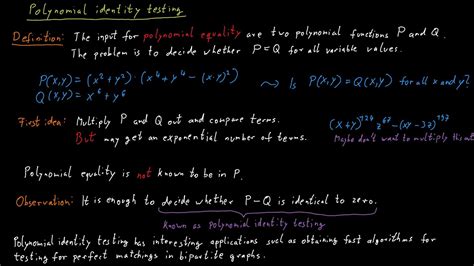 Polynomial identity testing
Definition: The input for polynomial equality are two polynomial functions P and Q.
The problem is to decide whether P=Q for all variable values.
P(x,y) = (x²+y²)·(x⁴+y⁴-(x·y)²)
Q(x,y) = x⁶+y⁶
~> Is P(x,y)=Q(x,y) for all x and y?
First idea: Multiply P and Q out and compare terms.
But may get an exponential number of terms.
Maybe don't want to multiply this out
Polynomial equality is not known to be in P.
Observation: It is enough to decide whether P-Q is identical to zero.
Known as polynomial identity testing
Polynomial identity testing has interesting applications such as obtaining fast algorithms for
testing for perfect matchings in bipartite graphs.